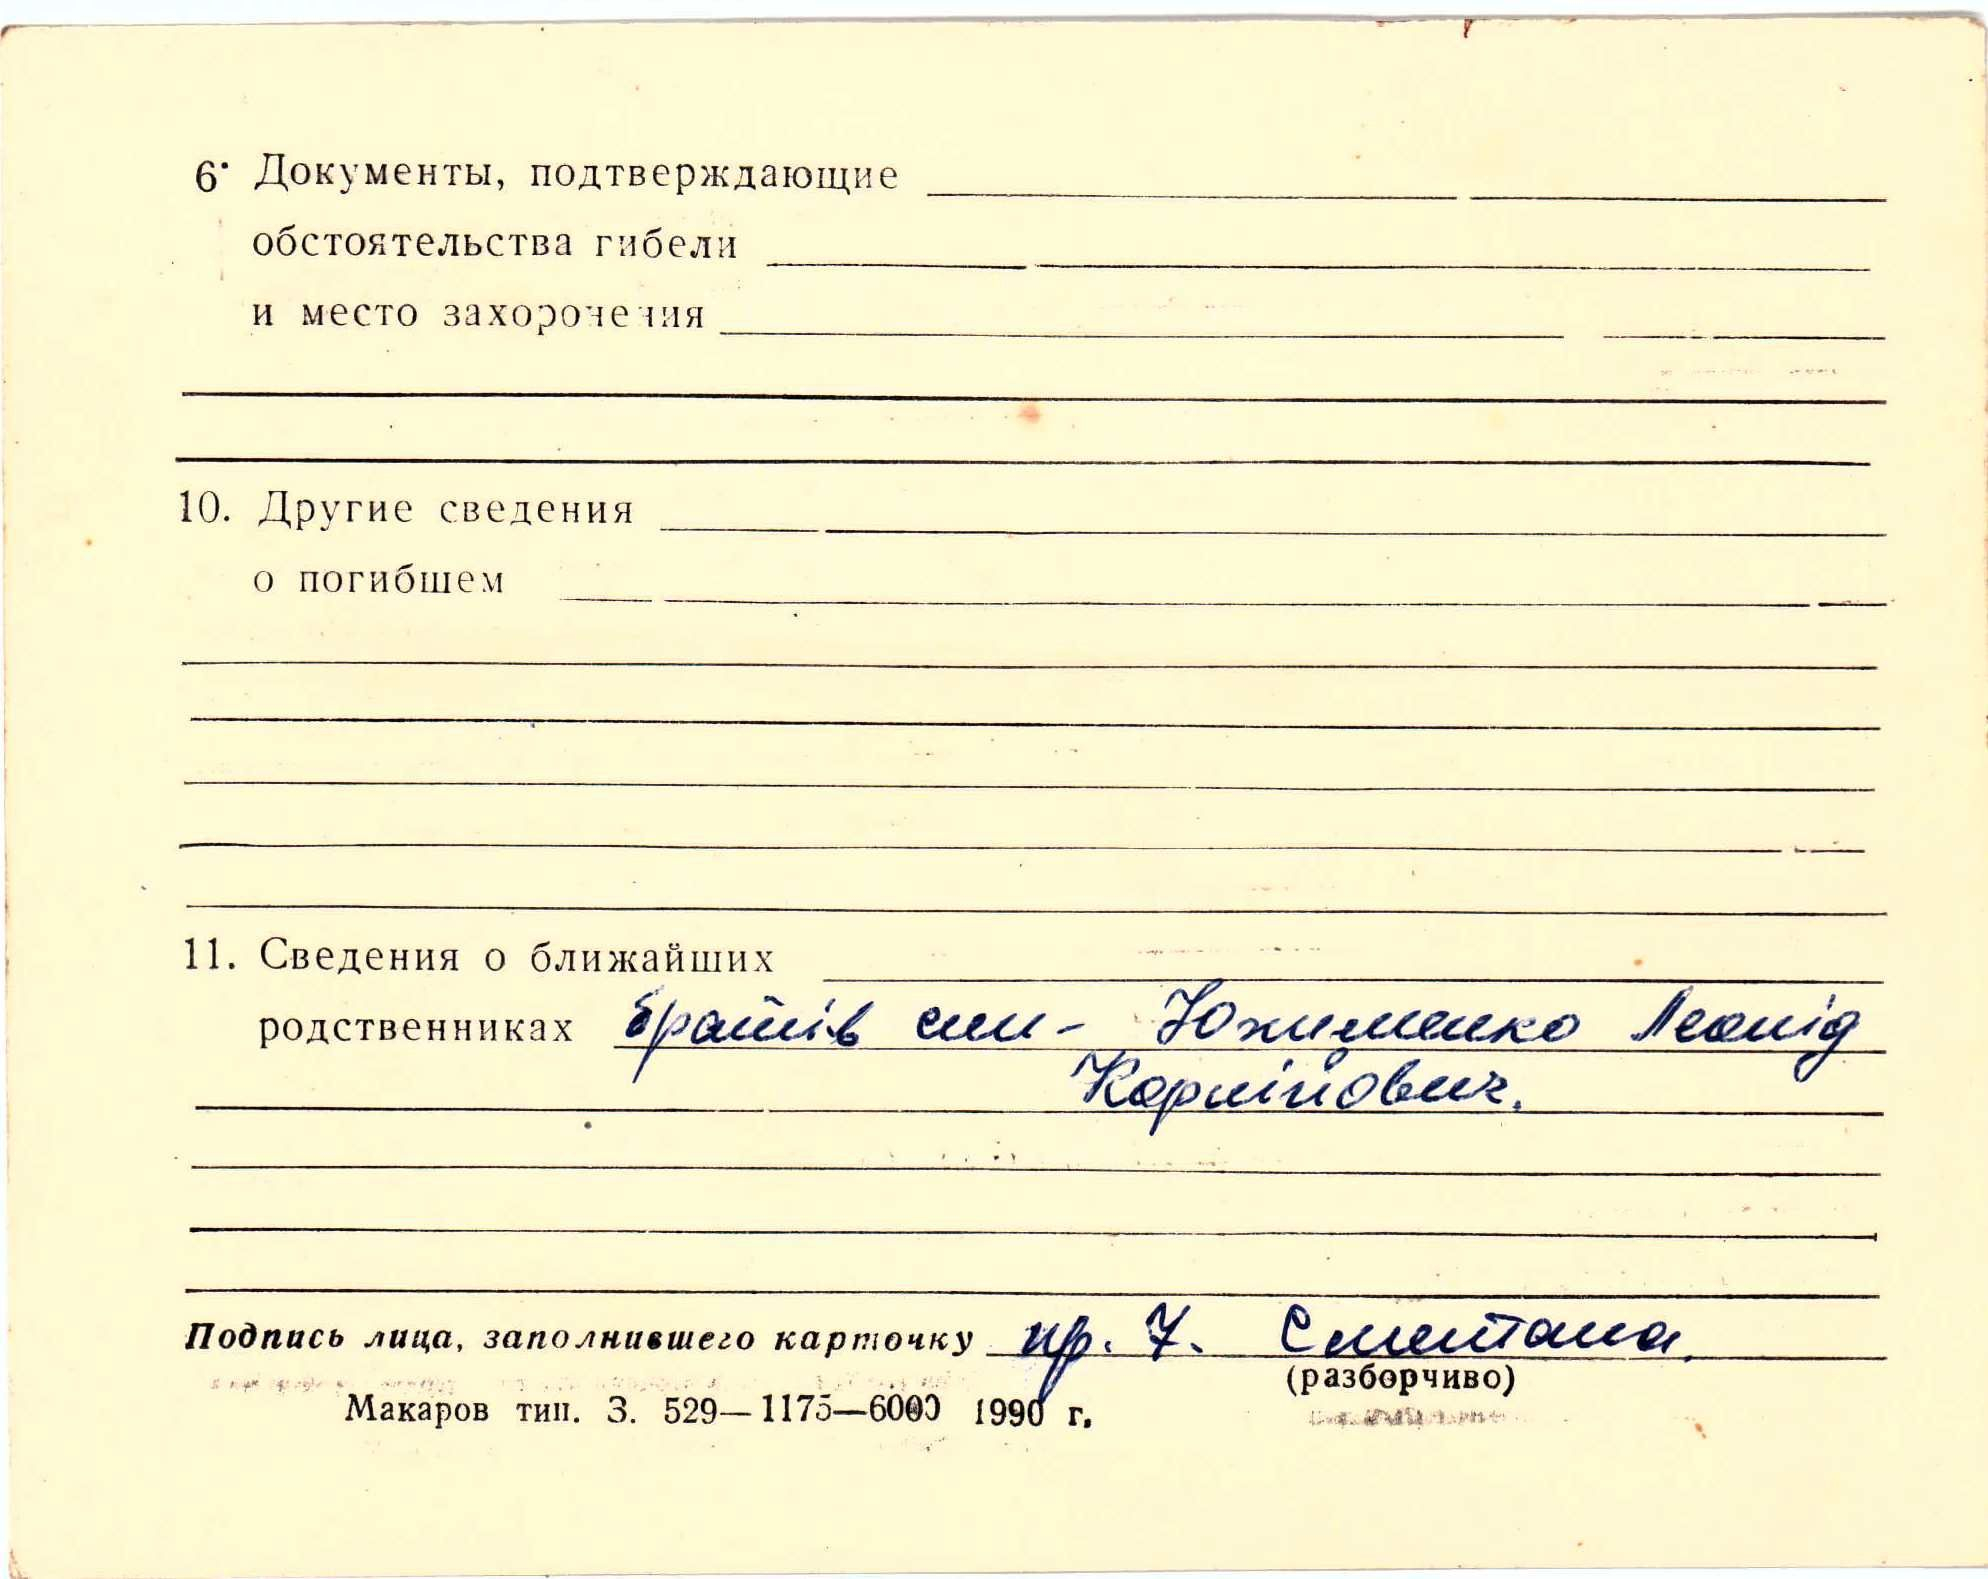 6. Документы, подтверждающие
обстоятельства гибели
и место захоронения
10. Другие сведения
о погибшем
11. Сведения о ближайших
родственниках братів син - Южименко Леонід
Корнійович.
Подпись лица, заполнившего карточку пр. 7. Сметана.
(разборчиво)
Макаров тип. З. 529—1175—6000 1990 г.